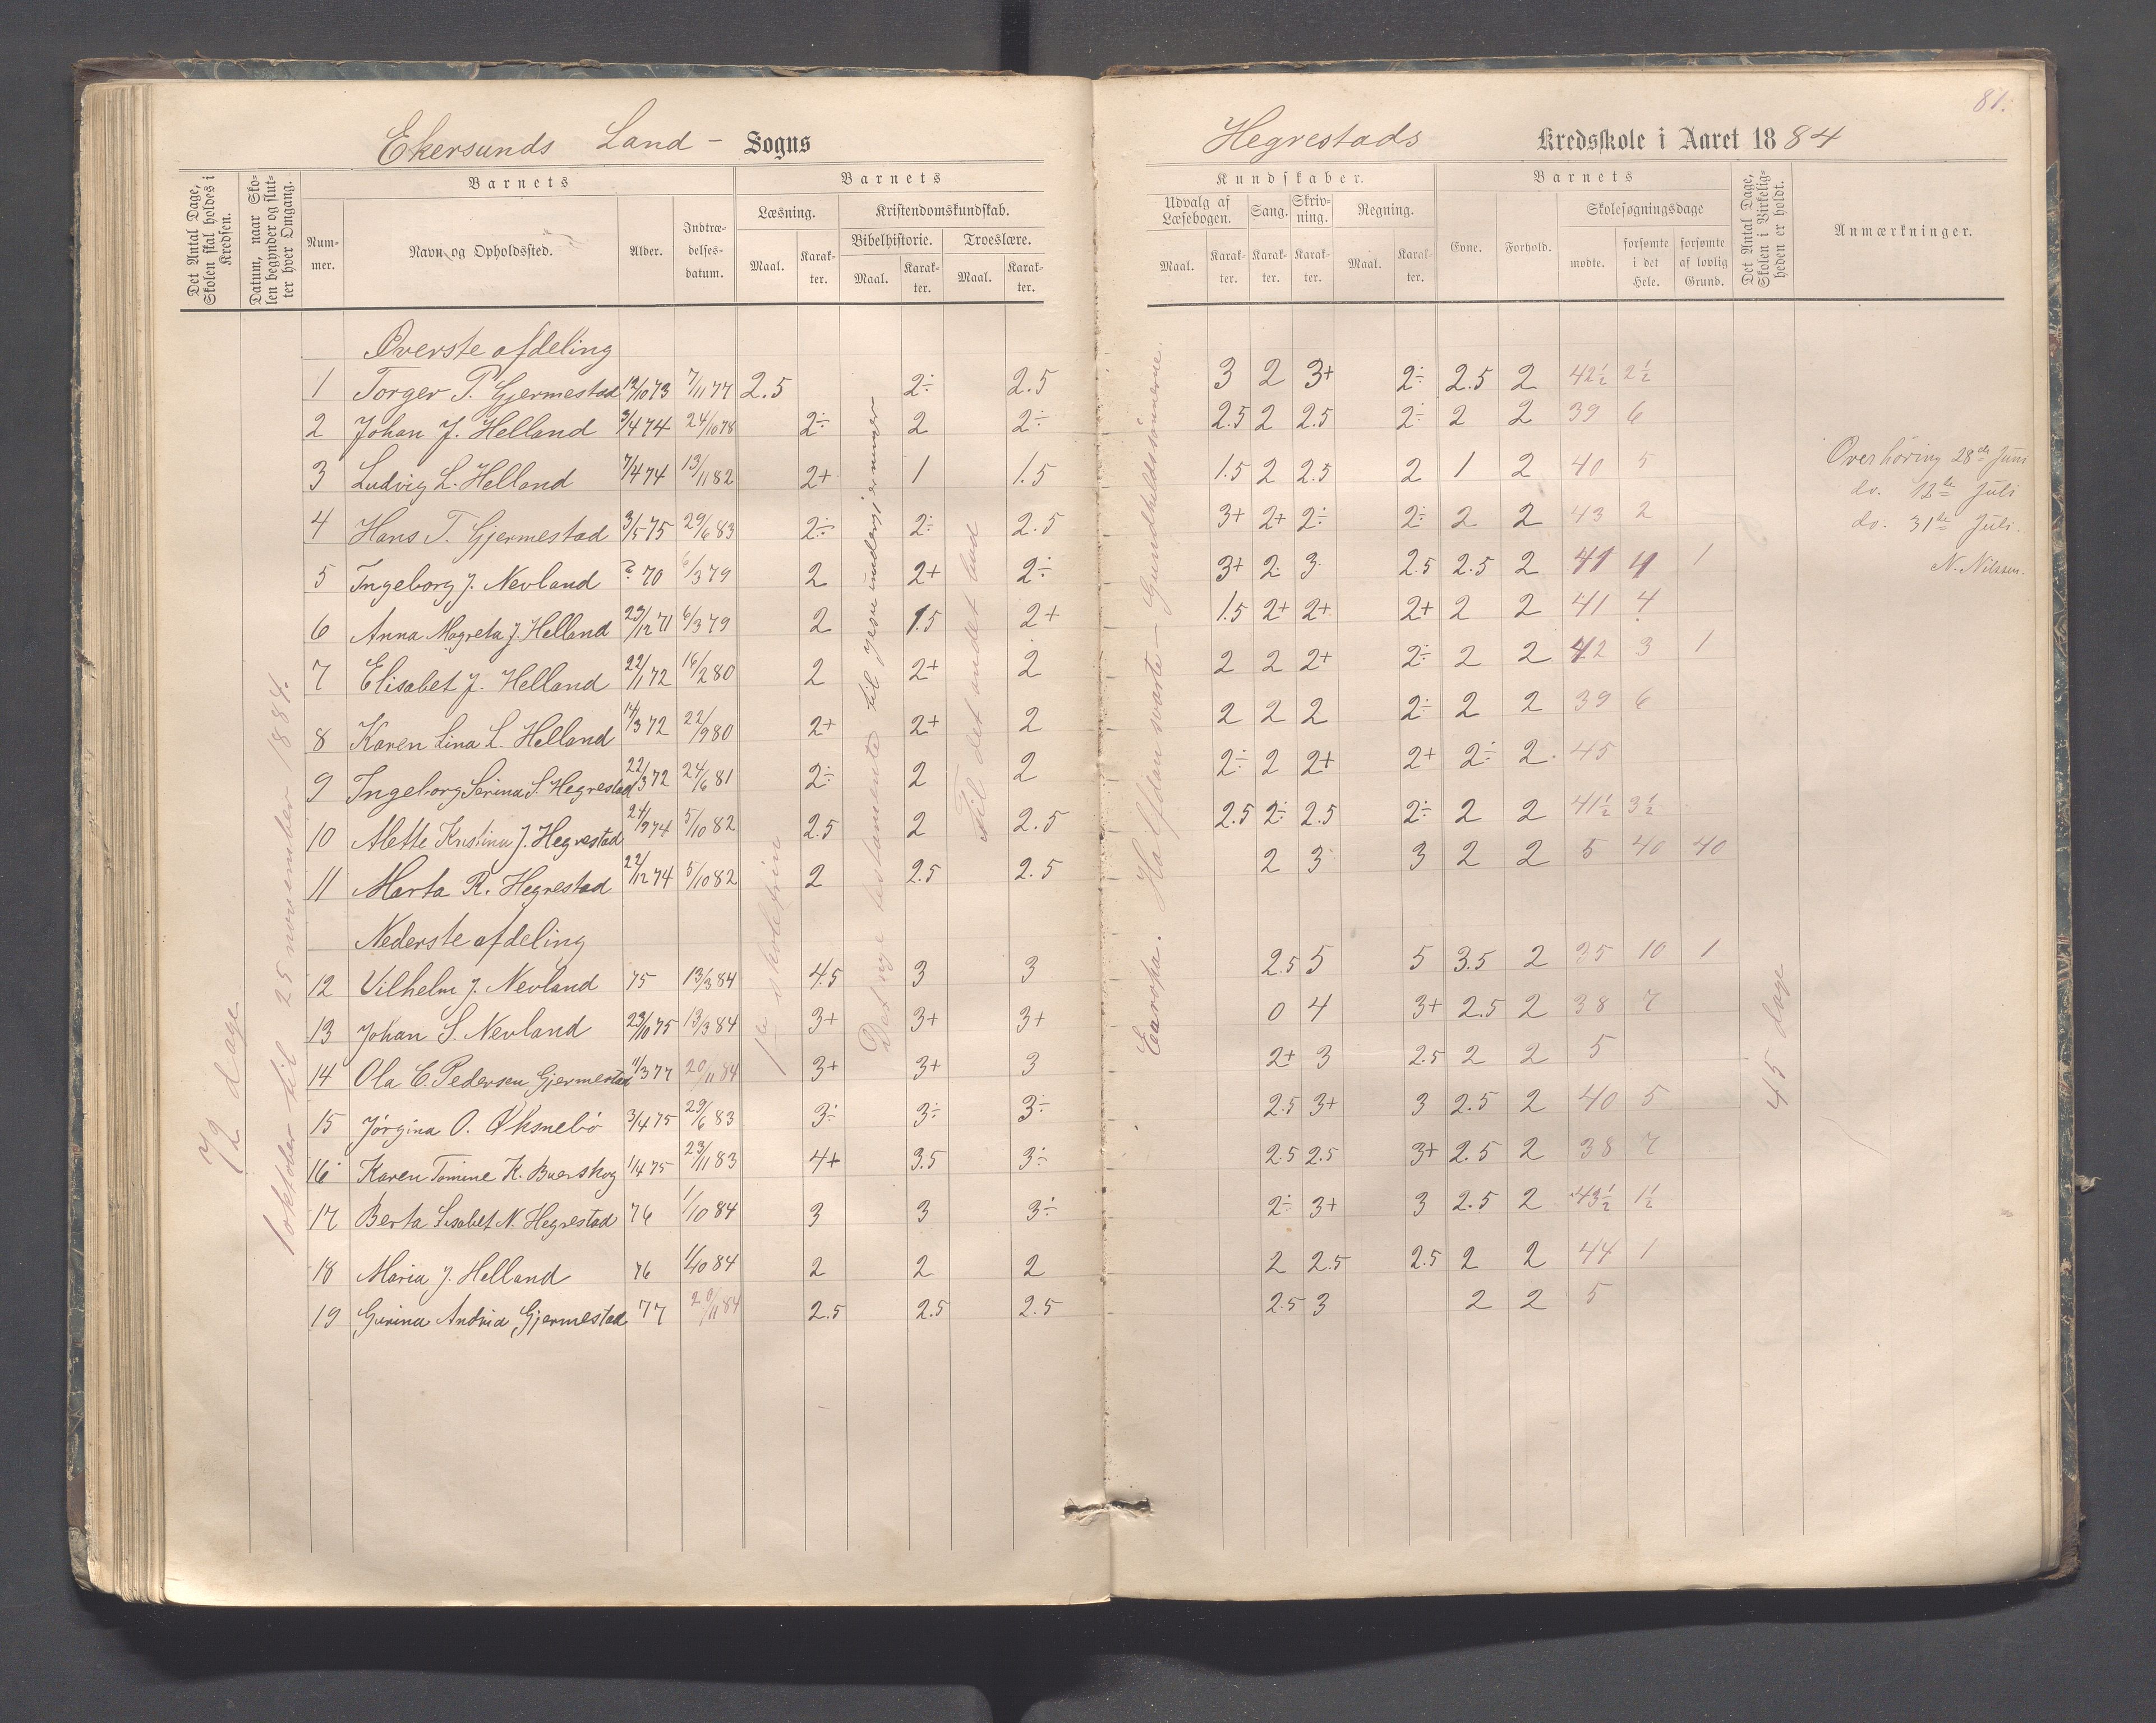 81.
Ekersunds Land - Sogns
Hegrestads Kredsskole i Aaret 1884
Det Antal Dage, Skolen skal holdes i Kredsen.
Datum, naar Skolen begynder og slutter hver Omgang.
Barnets
Nummer.
Navn og Opholdssted.
Alder.
Indtrædelsesdatum.
Barnets
Læsning.
Maal.
Karakter.
Kristendomskundskab.
Bibelhistorie.
Maal.
Karakter.
Troeslære.
Maal.
Karakter.
Kundskaber.
Udvalg af Læsebogen.
Maal.
Karakter.
Sang.
Karakter.
Skrivning.
Karakter.
Regning.
Maal.
Karakter.
Barnets
Evne.
Forhold.
Skolesøgningsdage
mødte.
forsømte i det Hele.
forsømte af lovlig Grund.
Det Antal Dage, Skolen i Virkeligheden er holdt.
Anmærkninger.
72 dage
1 oktober til 25 november 1884.
Det nye testamente til Jesu undergjerninger
Til det andet bud
Europa. Halfdan svarte - Gundhildssønnerne.
45 dage
Øverste afdeling
1 Torger P. Gjermestad 12/10 73 7/11 77 2.5 2÷ 2.5 3 2 3+ 2÷ 2.5 2 42½ 2½
2 Johan J. Helland 3/4 74 24/10 78 2÷ 2 2÷ 2.5 2 2.5 2÷ 2 2 39 6
3 Ludvig L. Helland 7/4 74 13/11 82 2+ 1 1.5 1.5 2 2.5 2 1 2 40 5
4 Hans T. Gjermestad 3/5 75 29/6 83 2÷ 2÷ 2.5 3+ 2+ 2÷ 2÷ 2 2 43 2
5 Ingeborg J. Nevland ? 70 6/3 79 2 2+ 2÷ 3+ 2 3 2.5 2.5 2 41 4 1
6 Anna Magreta J. Helland 23/12 71 6/3 79 2 1.5 2+ 1.5 2+ 2+ 2+ 2 2 41 4
7 Elisabet J. Helland 22/1 72 16/2 80 2 2+ 2 2 2 2+ 2÷ 2 2 42 3 1
8 Karen Lina L. Helland 14/3 72 22/9 80 2+ 2+ 2 2 2 2 2÷ 2 2 39 6
9 Ingeborg Serina S. Hegrestad 22/3 72 24/6 81 2÷ 2 2 2÷ 2 2+ 2+ 2÷ 2 45
10 Mette Kristina J. Hegrestad 21/9 74 5/10 82 2.5 2 2.5 2.5 2÷ 2.5 2÷ 2 2 41½ 3½
11 Marta R. Hegrestad 22/12 74 5/10 82 2 2.5 2.5 2 3 3 2 2 5 40 40
Nederste afdeling
12 Vilhelm J. Nevland 75 13/3 84 4.5 3 3 2.5 5 5 3.5 2 35 10 1
13 Johan S. Nevland 23/10 75 13/3 84 3+ 3+ 3+ 0 4 3+ 2.5 2 38 7
14 Ola C. Pedersen Gjermestad 11/3 77 20/11 84 3+ 3+ 3 2+ 3 2.5 2 2 5
15 Jørgina O. Øksnebø 3/4 75 29/6 83 3÷ 3÷ 3÷ 2.5 3+ 3 2.5 2 40 5
16 Karen Tomine K. Buerskog 1/4 75 23/11 83 4+ 3.5 3÷ 2.5 2.5 3+ 2.5 2 38 7
17 Berta Lisabet N. Hegrestad 76 1/10 84 3 3 3÷ 2÷ 3+ 3 2.5 2 43½ 1½
18 Maria J. Helland 76 1/10 84 2 2 2 2 2.5 2.5 2 2 44 1
19 Gurina Andria Gjermestad 77 20/11 84 2.5 2.5 2.5 2.5 3 2 2 5
Overhøring 28de Juni
do. 12te Juli
do. 31te Juli.
N. Nilssen.